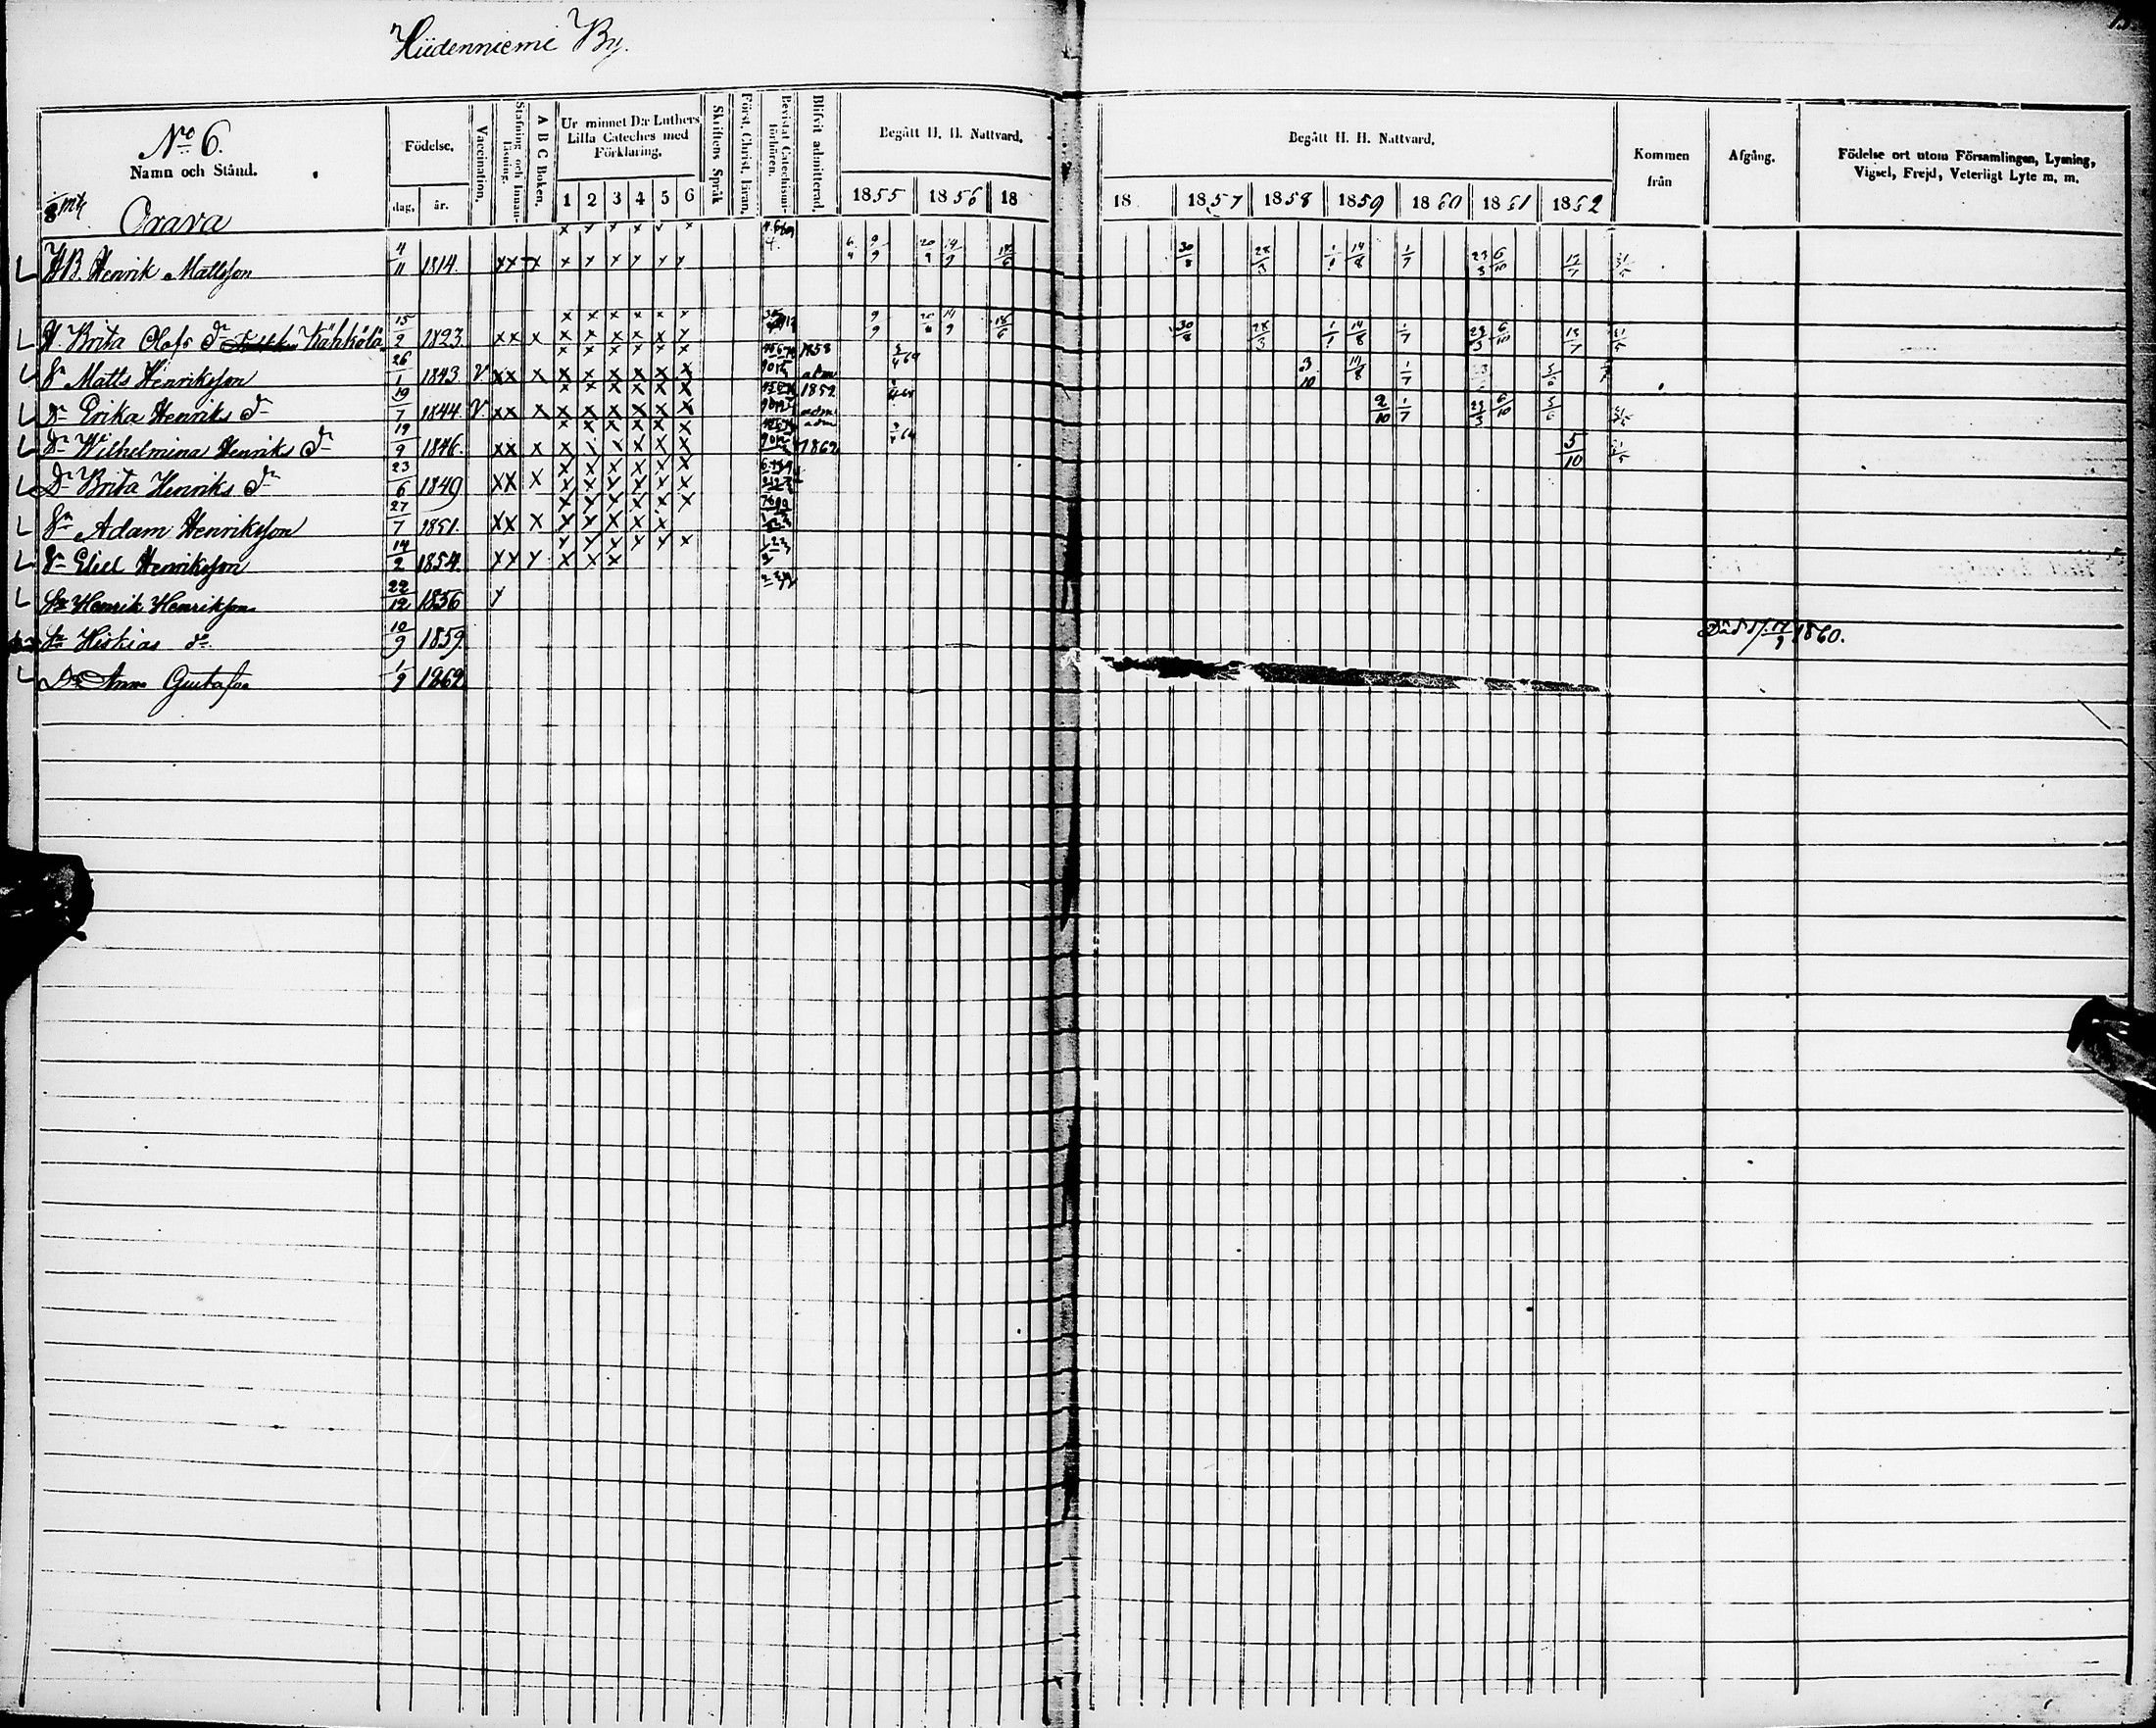 Hiidenniemi By.
No 6.
Namn och Stånd.
Födelse.
dag, år.
Vaccination.
Stafning och Innan-läsning.
A B C Boken.
Ur minnet D:r Luthers Lilla Cateches med Förklaring.
1 2 3 4 5 6
Skriftens Språk
Först. Christ. läran.
Bevistat Catechismi-förhören.
Blifvit admitterad.
Begått H. H. Nattvard.
1855 1856 18
Begått H. H. Nattvard.
18 1857 1858 1859 1860 1861 1862
Kommen från
Afgång.
Födelse ort utom Församlingen, Lysning, Vigsel, Frejd, Veterligt Lyte m. m.
Orava
HB. Henrik Mattsson 4/11 1814. x x x x x x x x x 6/4 9/9 14/9 30/8 28/3 1/1 14/8 1/7 23/3 6/10 13/7 31/5
H. Brita Olofs dr Kähkölä 15/2 1823. x x x x x x x x x 9/9 14/9 18/6 30/8 28/3 1/1 14/8 1/7 23/3 6/10 13/7 31/5
Sn Matts Henriksson 26/1 1843 V. x x x x x x x x x 1858 adm 3/10 14/8 1/7
Dr Erika Henriks dr 19/7 1844 V. x x x x x x x x x 1859 adm 2/10 1/7 23/3 6/10 5/6
Dr Wilhelmina Henriks dr 19/9 1846. x x x x x x x x x adm 1862 5/10
Dr Brita Henriks dr 23/6 1849 x x x x x x x x x
Sn Adam Henriksson 27/7 1851. x x x x x x x x
Sn Eliel Henriksson 14/2 1854. x x x x x x
Sn Henrik Henriksson 22/12 1856 x
Sn Hiskias do 10/9 1859. Död d. 17/9 1860.
Dr Anna Gustafva 1/9 1862